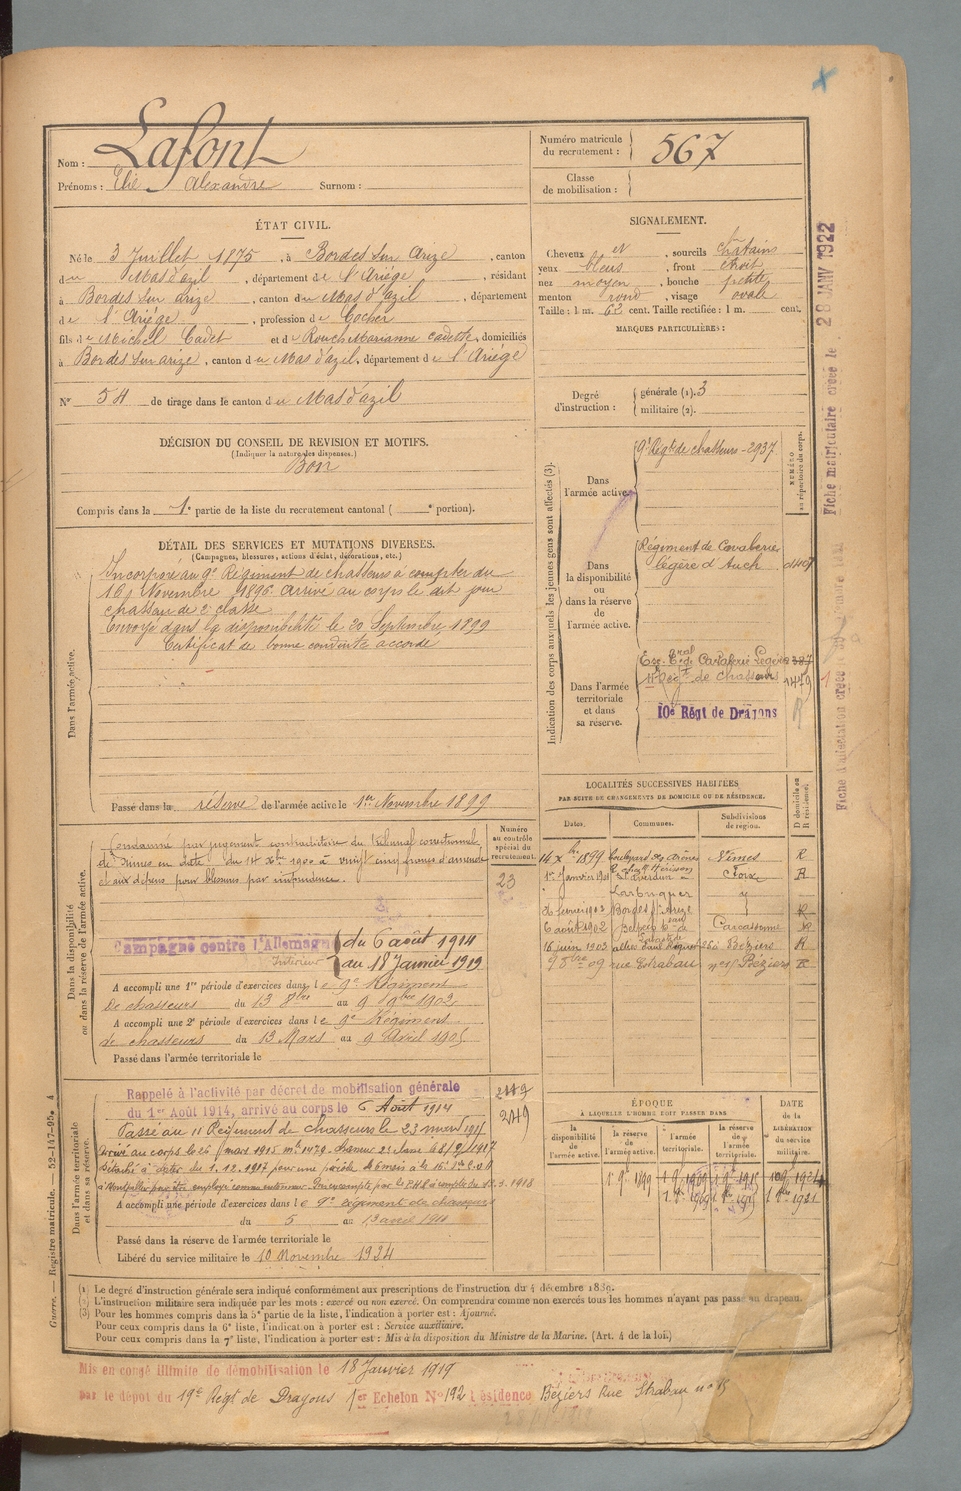 Nom : Lafont
Prénoms : Elie Alexandre Surnom :
Numéro matricule du recrutement : 567
Classe de mobilisation :
ÉTAT CIVIL.
Né le 3 Juillet 1875, à Bordes sur Arize, canton
du Mas d'azil, département de l'Ariége, résidant
à Bordes sur arize, canton du Mas d'azil, département
de l'Ariége, profession de Cocher
fils de Michel Cadet et de Rouch Marianne cadette, domiciliés
à Bordes sur arize, canton du Mas d'azil, département de l'Ariége
N° 54 de tirage dans le canton du Mas d'azil
DÉCISION DU CONSEIL DE REVISION ET MOTIFS.
(Indiquer la nature des dispenses.)
Bon
Compris dans la 1e partie de la liste du recrutement cantonal ( e portion).
SIGNALEMENT.
Cheveux et, sourcils chatains
yeux bleus, front étroit
nez moyen, bouche petite
menton rond, visage ovale
Taille : 1 m. 62 cent. Taille rectifiée : 1 m. cent.
MARQUES PARTICULIÈRES :
Degré d'instruction : générale (1). 3
militaire (2).
Indication des corps auxquels les jeunes gens sont affectés (3).
NUMÉRO au répertoire du corps.
Dans l'armée active.
9e Régt de chasseurs - 2937
Dans la disponibilité ou dans la réserve de l'armée active.
Régiment de Cavalerie
légère d'Auch
Dans l'armée territoriale et dans sa réserve.
Cavalerie Légère
11e Régt de Chasseurs 1479
10e Régt de Dragons R
DÉTAIL DES SERVICES ET MUTATIONS DIVERSES.
(Campagnes, blessures, actions d'éclat, décorations, etc.)
Dans l'armée active.
Incorporé au 9e Régiment de chasseurs à compter du
16 Novembre 1896. Arrivé au corps le dit jour
chasseur de 2e classe
Envoyé dans la disponibilité le 20 Septembre 1899
Certificat de bonne conduite accordé
Passé dans la réserve de l'armée active le 1er Novembre 1899
Dans la disponibilité ou dans la réserve de l'armée active.
Numéro au contrôle spécial du recrutement.
23
Condamné par jugement contradictoire du Tribunal correctionnel
de Nimes en date du 14 Xbre 1900 à vingt cinq francs d'amende
et aux dépens pour blessures par imprudence.
Campagne contre l'Allemagne du 6 août 1914
Intérieur au 18 Janvier 1919
A accompli une 1re période d'exercices dans le 9e Régiment
de chasseurs du 13 8bre au 9 9bre 1902
A accompli une 2e période d'exercices dans le 9e Régiment
de chasseurs du 13 Mars au 9 Avril 1905
Passé dans l'armée territoriale le
LOCALITÉS SUCCESSIVES HABITÉES
PAR SUITE DE CHANGEMENTS DE DOMICILE OU DE RÉSIDENCE.
Dates. Communes. Subdivisions de région. D domicile ou R résidence.
14 Xbre 1899 boulevard des Arènes Nimes R
1er Janvier 1901 Foix R
26 février 1902 Bordes s/ Arize R
6 août 1902 Carcassonne R
16 juin 1903 allées Paul Riquet 26 Béziers R
9 8bre 09 rue Strabau n° 15 Béziers R
Dans l'armée territoriale et dans sa réserve.
Rappelé à l'activité par décret de mobilisation générale
du 1er Août 1914, arrivé au corps le 6 Août 1914
Passé au 11 Régiment de chasseurs le 23 mars 1915
Arrivé au corps le 26 mars 1915
Détaché à dater du 1.12.1917 pour une période de 6 mois
A accompli une période d'exercices dans le 9e régiment de chasseurs
du 5 au 13 avril 1910
Passé dans la réserve de l'armée territoriale le
Libéré du service militaire le 10 Novembre 1924
2449
ÉPOQUE
À LAQUELLE L'HOMME DOIT PASSER DANS
la disponibilité de l'armée active. la réserve de l'armée active. l'armée territoriale. la réserve de l'armée territoriale.
DATE de la LIBÉRATION du service militaire.
1 9bre 1899 1 9bre 1909 1 9bre 1915
(1) Le degré d'instruction générale sera indiqué conformément aux prescriptions de l'instruction du 4 décembre 1889.
(2) L'instruction militaire sera indiquée par les mots : exercé ou non exercé. On comprendra comme non exercés tous les hommes n'ayant pas passé au drapeau.
(3) Pour les hommes compris dans la 5e partie de la liste, l'indication à porter est : Ajourné.
Pour ceux compris dans la 6e liste, l'indication à porter est : Service auxiliaire.
Pour ceux compris dans la 7e liste, l'indication à porter est : Mis à la disposition du Ministre de la Marine. (Art. 4 de la loi.)
Mis en congé illimité de démobilisation le 18 Janvier 1919
par le dépôt du 19e Régt de Dragons 1er Echelon N° 192 résidence Béziers Rue Strabau n° 15
Guerre. — Registre matricule. — 52-147-95. A
Fiche matriculaire créée le 28 JANV 1922